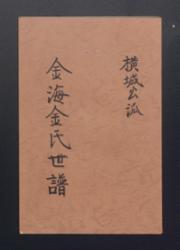 橫城公派
金海金氏世譜